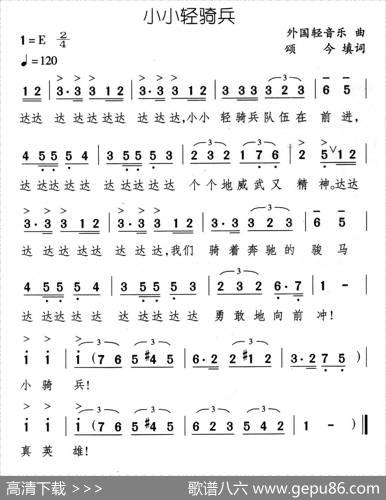 小小轻骑兵
1=E 2/4
外国轻音乐 曲
♩=120
颂 今 填词
1 2 | 3·3 3 1 2 | 3·3 3 1 2 | 3·3 3 3 2 3 | 6 5 |
达达 达达达达达 达达达,小小 轻骑兵队伍在 前进,
4 5 5 5 4 | 3 5 5 5 3 | 2 3 2 1 7 6 | 2 5 ∨ 1 2 |
达 达达达达达 达达达达达 个个地威武又 精神。达达
3·3 3 1 2 | 3·3 3 1 2 | 3·3 3 3 2 3 | 6 5 |
达 达达达达 达 达达,我们 骑着奔驰的 骏马
4 5 5 5 4 | 3 5 5 5 3 | 2 3 2 5 6 7 | 1 - |
达 达达达达 达达达达达 勇敢地向前 冲!
i i | i (7 6 5 #4 5 | 6·2 2 #1 2 | 3·2 7 5) |
小骑 兵!
i i | i (7 6 5 #4 5 6 5 4 3 4 2 | 1) - ‖
真英 雄!
高清下载 >>>
歌谱八六 www.gepu86.com